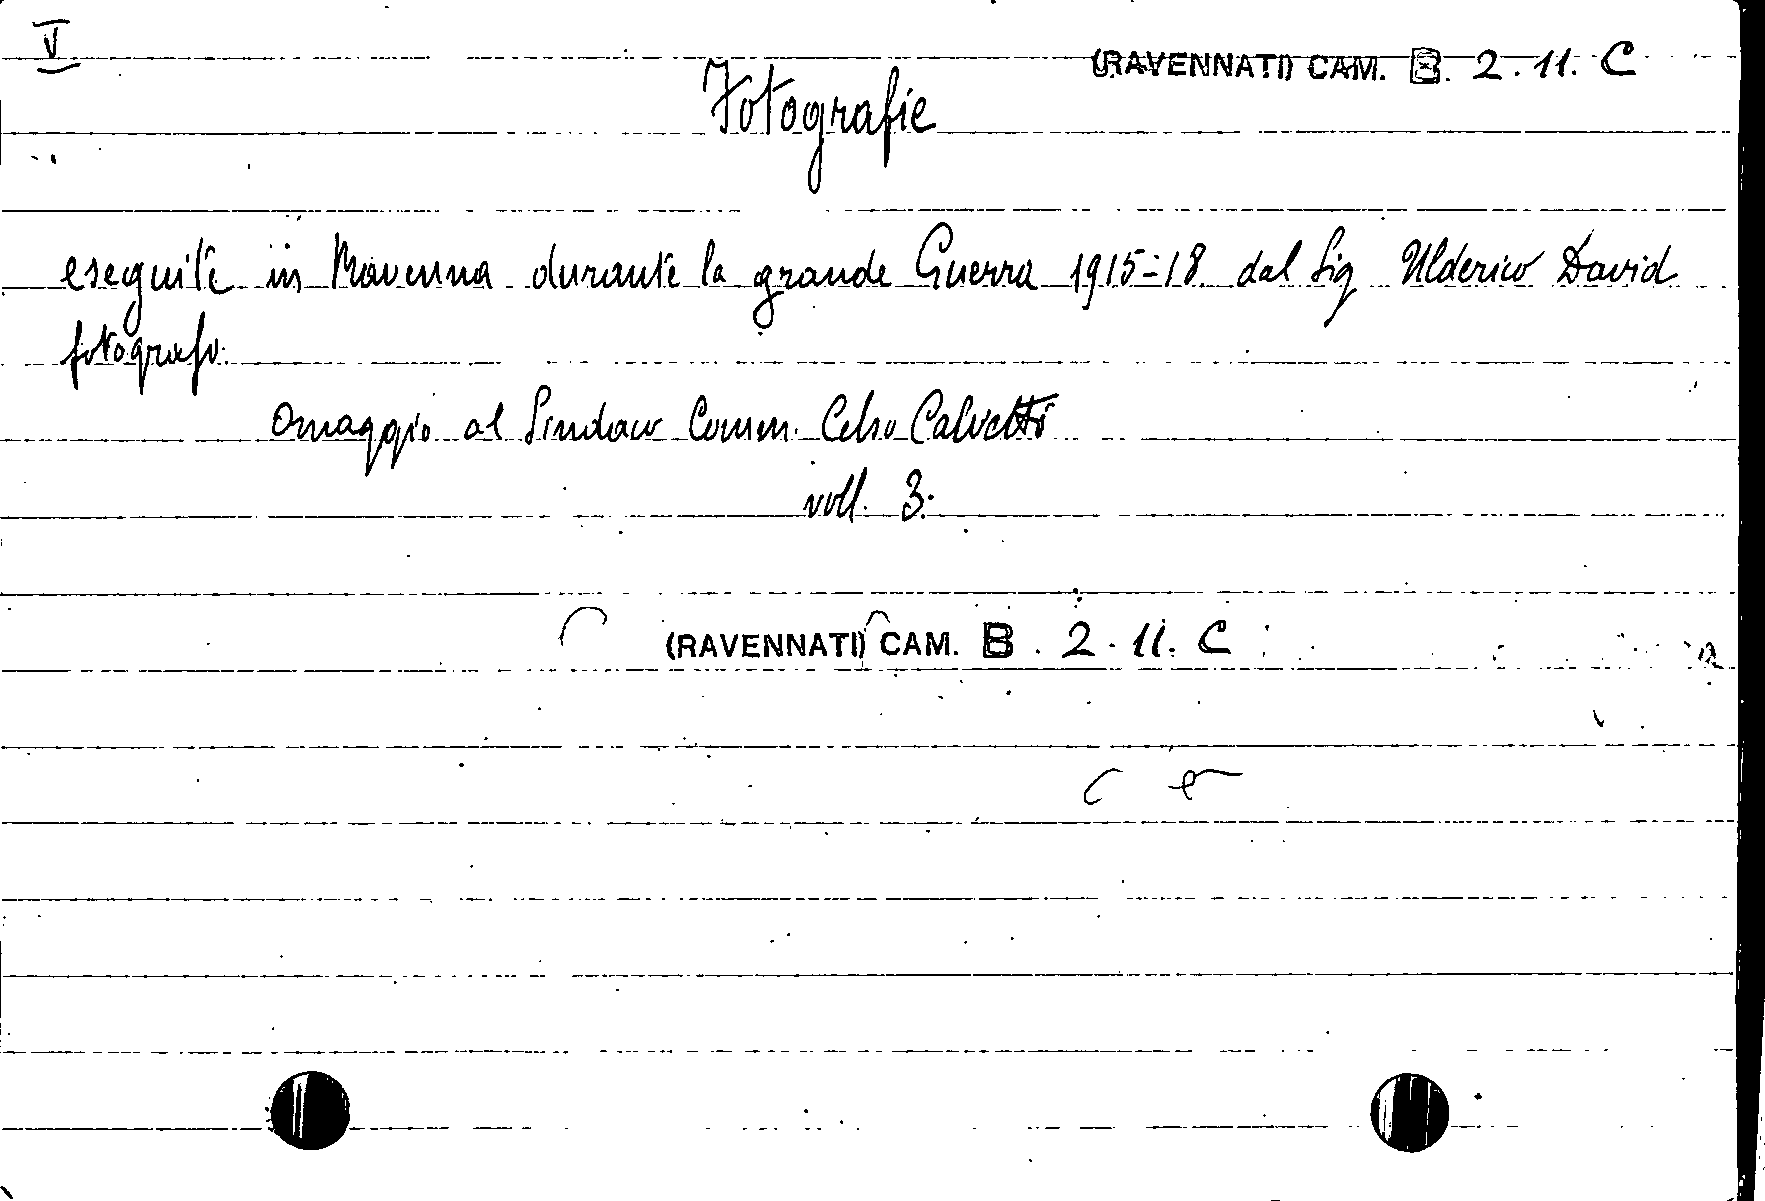 V
(RAVENNATI) CAM. B. 2. 11. C
Fotografie
eseguite in Ravenna durante la grande Guerra 1915-18 dal Sig Ulderico David
fotografo.
Omaggio al Sindaco Comm. Celso Calvetti
voll. 3.
(RAVENNATI) CAM. B. 2. 11. C